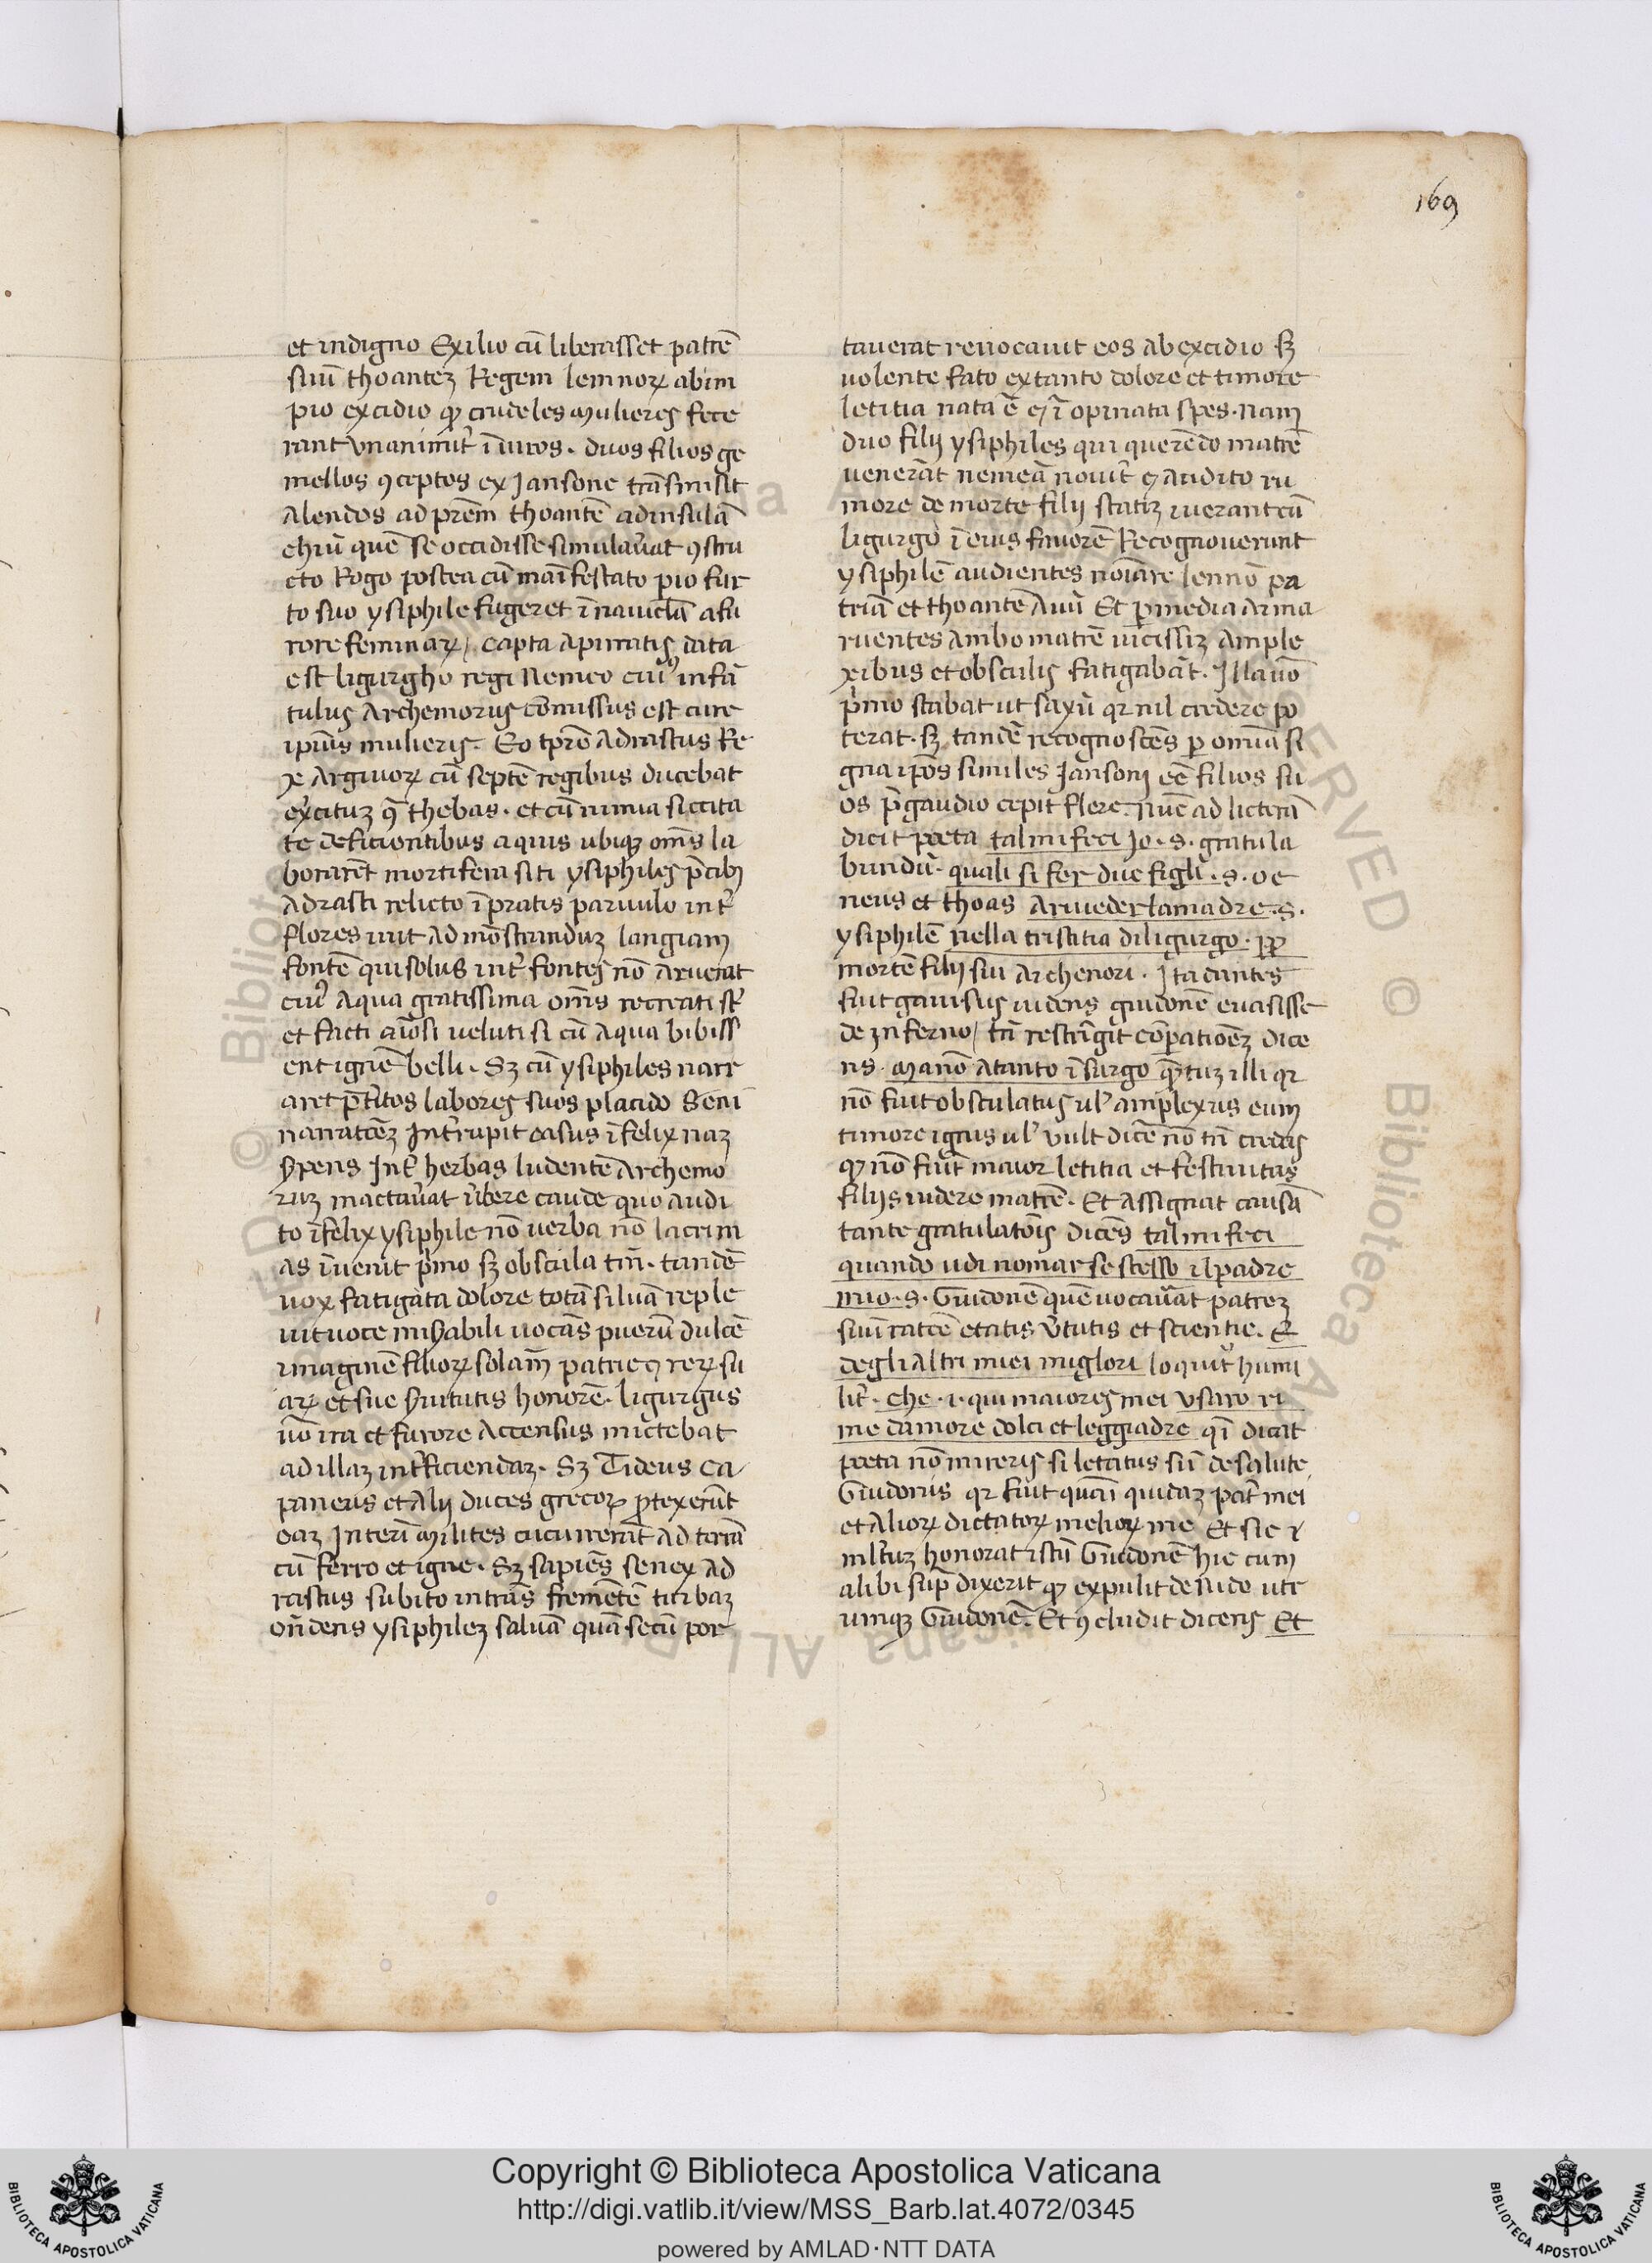 169
et indigno Exilio cū liberasset patrē
suū thoantez Regem lemnoꝝ ab im
pio excidio qḍ crudeles mulieres fece
rant vnanimit̉ ī uiros. duos filios ge
mellos ꝯceptos ex Jansone trāsmisit
Alendos ad prēm thoantē ad insulā
chiū quē se occidisse simulau̓at ꝯstru
cto Rogo postea cū maīfestato pio fur
to suo ysiphile fugeret ī nauiclā a fu
rore feminaꝝ / capta a piratis data
est ligurgho regi Nemeo cuiꝰ infā
tulus Archemorus comissus est cure
ipiūs mulieris. Eo tp̄re Adrastus Re
x Argiuoꝝ cū septē regibus ducebat
ex̓cituz ꝯ̄ thebas. et cū nimia siccita
te deficientibus aquis ubiqꝫ om̄s la
borarēt mortifera siti ysiphiles p̄cibꝫ
Adrasti relicto ī pratis paruulo int̉
flores iuit ad mōstranduz langiam
fontē qui solus int̉ fontes nō aruerat
cuiꝰ Aqua gratissima om̄s recreati st̉
et facti aīosi ueluti si cū aqua bibiss
ent ignē belli. Sꝫ cū ysiphiles narr
aret p̄t̉itos labores suos placido Seni
narratōez Int̉rupit casus ifelix naz
sꝑens Int̉ herbas ludentē Archemo
ruz mactau̓at u̓bere caude quo audi
to īfelix ysiphile nō uerba nō lacrim
as īuenit p̓mo sꝫ obscula tm̄. tandē
uox fatigata dolore totā siluā reple
uit uoce mis̉abili uocās puerū dulcē
imaginē filioꝝ solam̄ patrie ꝯ reꝝ su
aꝝ et sue s̉uitutis honorē. ligurgus
uō ira et furore Accensus mictebat
ad illaz int̉ficiendaz. Sꝫ Tideus Ca
paneus et Alij duces grecoꝝ ꝓtexerūt
eaz Interī milites cucurrerāt ad terrā
cū ferro et igne. Sꝫ sapiēs senex Ad
rastus subito intrās fremētē turbaz
on̄dens ysiphilez saluā quā secū por
tauerat reuocauit eos ab excidio sꝫ
uolente fato ex tanto dolore et timore
letitia nata ē ꝫ ī opinata spes. nam
duo filij ysiphiles qui querēdo matrē
uenerāt nemeā nouit̓ ꝫ audito ru
more de morte filij statiz iuerant cū
ligurgo ī eius fauorē Recognouerunt
ysiphilē audientes noiāre lennō pa
triā et thoantē Auū Et ꝑ media arma
ruentes ambo matrē uicissiz Ample
xibus et obsculis fatigabāt. Illa uō
p̓mo stabat ut saxū qꝛ nil credere po
terat. sꝫ tandē recognoscēs ꝑ omnia si
gna ipōs similes Jansoni eē filios su
os p̄ gaudio cepit flere. nūc ad licterā
dicit poeta tal mi feci Io. S. gratula
bundū. quali si fer due figli. S. oe
neus et thoas A riueder la madre. S.
ysiphilē nella tristitia di ligurgo. ꝓp̄
mortē filij sui Archenori. Ita dantes
fuit gauisus uidens guidonē euasisse
de Inferno / tn̄ restrīgit cōparatiōez dice
ns. Ma nō a tanto īsurgo qū̄tuz illi qꝛ
nō fuit obsculatus ul̉ amplexus eum
timore ignis ul̉ vult dic̄e nō tn̄ credas
qḍ nō fuit̓ maior letitia et festiuitas
filijs uidere matrē. Et assignat causā
tante gratulatōis dicēs tal mi feci
quando udi nomar se stesso il padre
mio. S. Guidonē quē uocau̓at patrez
suū ratōe etatis v̓tutis et scientie. E
degli Altri miei miglori loquit̉ humi
lit̓. che .i. qui maiores mei vsaro ri
me damore dolci et leggiadre qī dicat
poeta nō mireris si letatus sū de salute
Guidonis qꝛ fuit quasi quidaz pat̉ mei
et Alioꝝ dictatoꝝ melioꝝ me Et sic ꝛ
ml̉tuz honorat istū Guidonē hic cum
alibi sup̄ dixerit qḍ expulit de nido utr
umqꝫ Guidonē. Et ꝯcludit dicens Et
Copyright © Biblioteca Apostolica Vaticana
http://digi.vatlib.it/view/MSS_Barb.lat.4072/0345
powered by AMLAD·NTT DATA